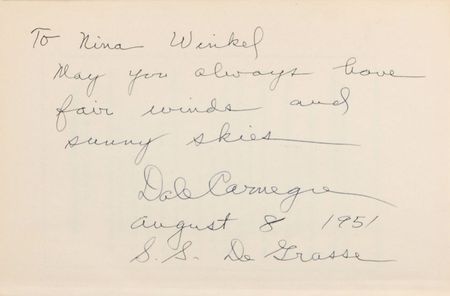 To Nina Winkel
May you always have
fair winds and
sunny skies
Dale Carnegie
August 8 1951
S.S. De Grasse